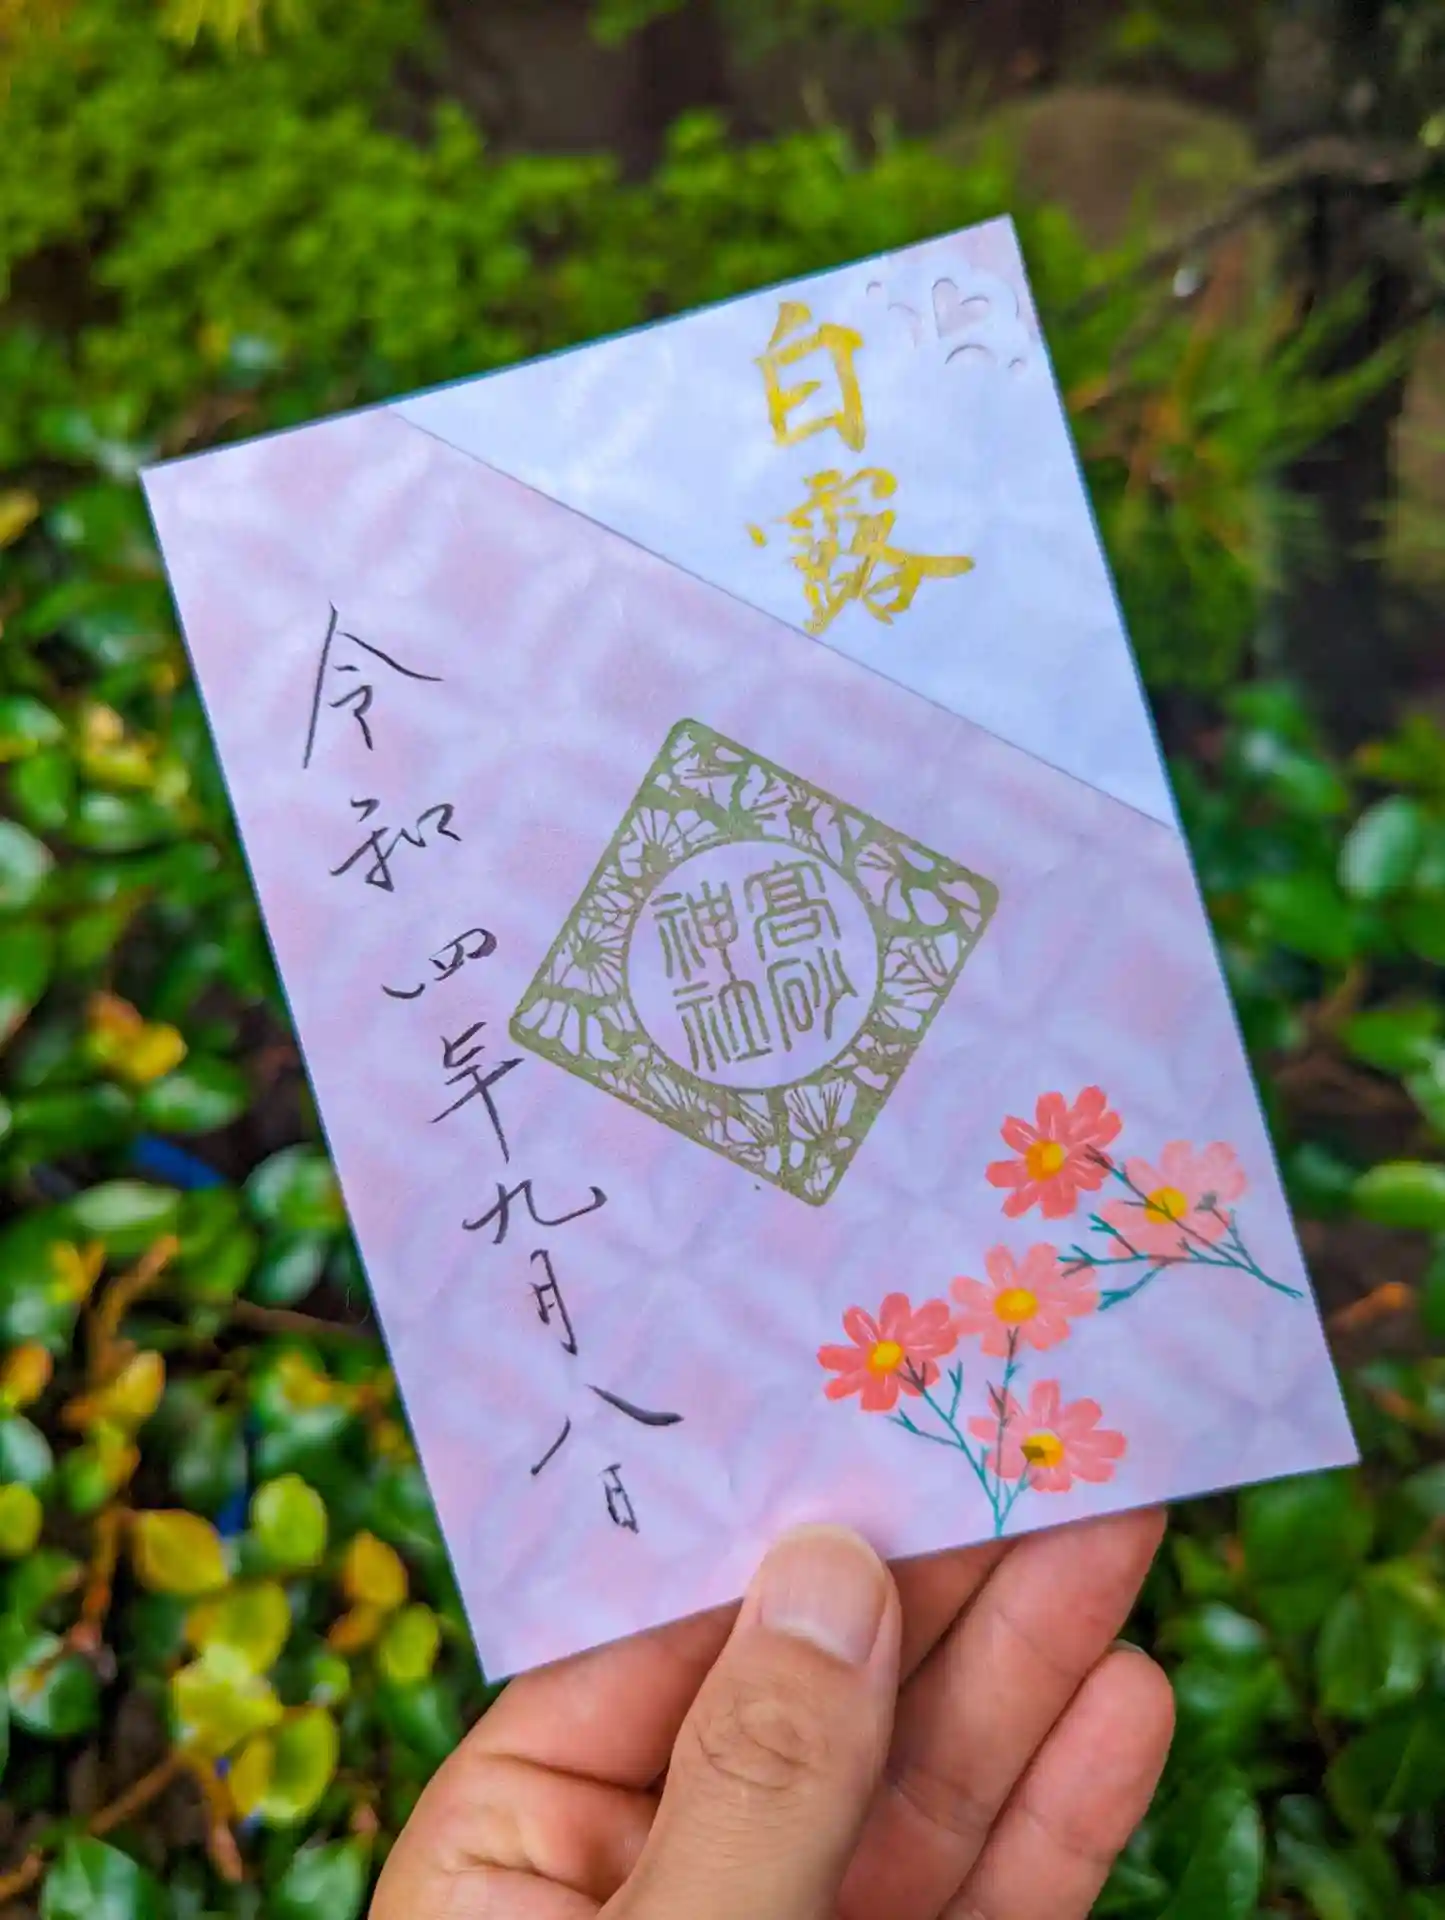 白露
高砂
神社
令和四年九月八日